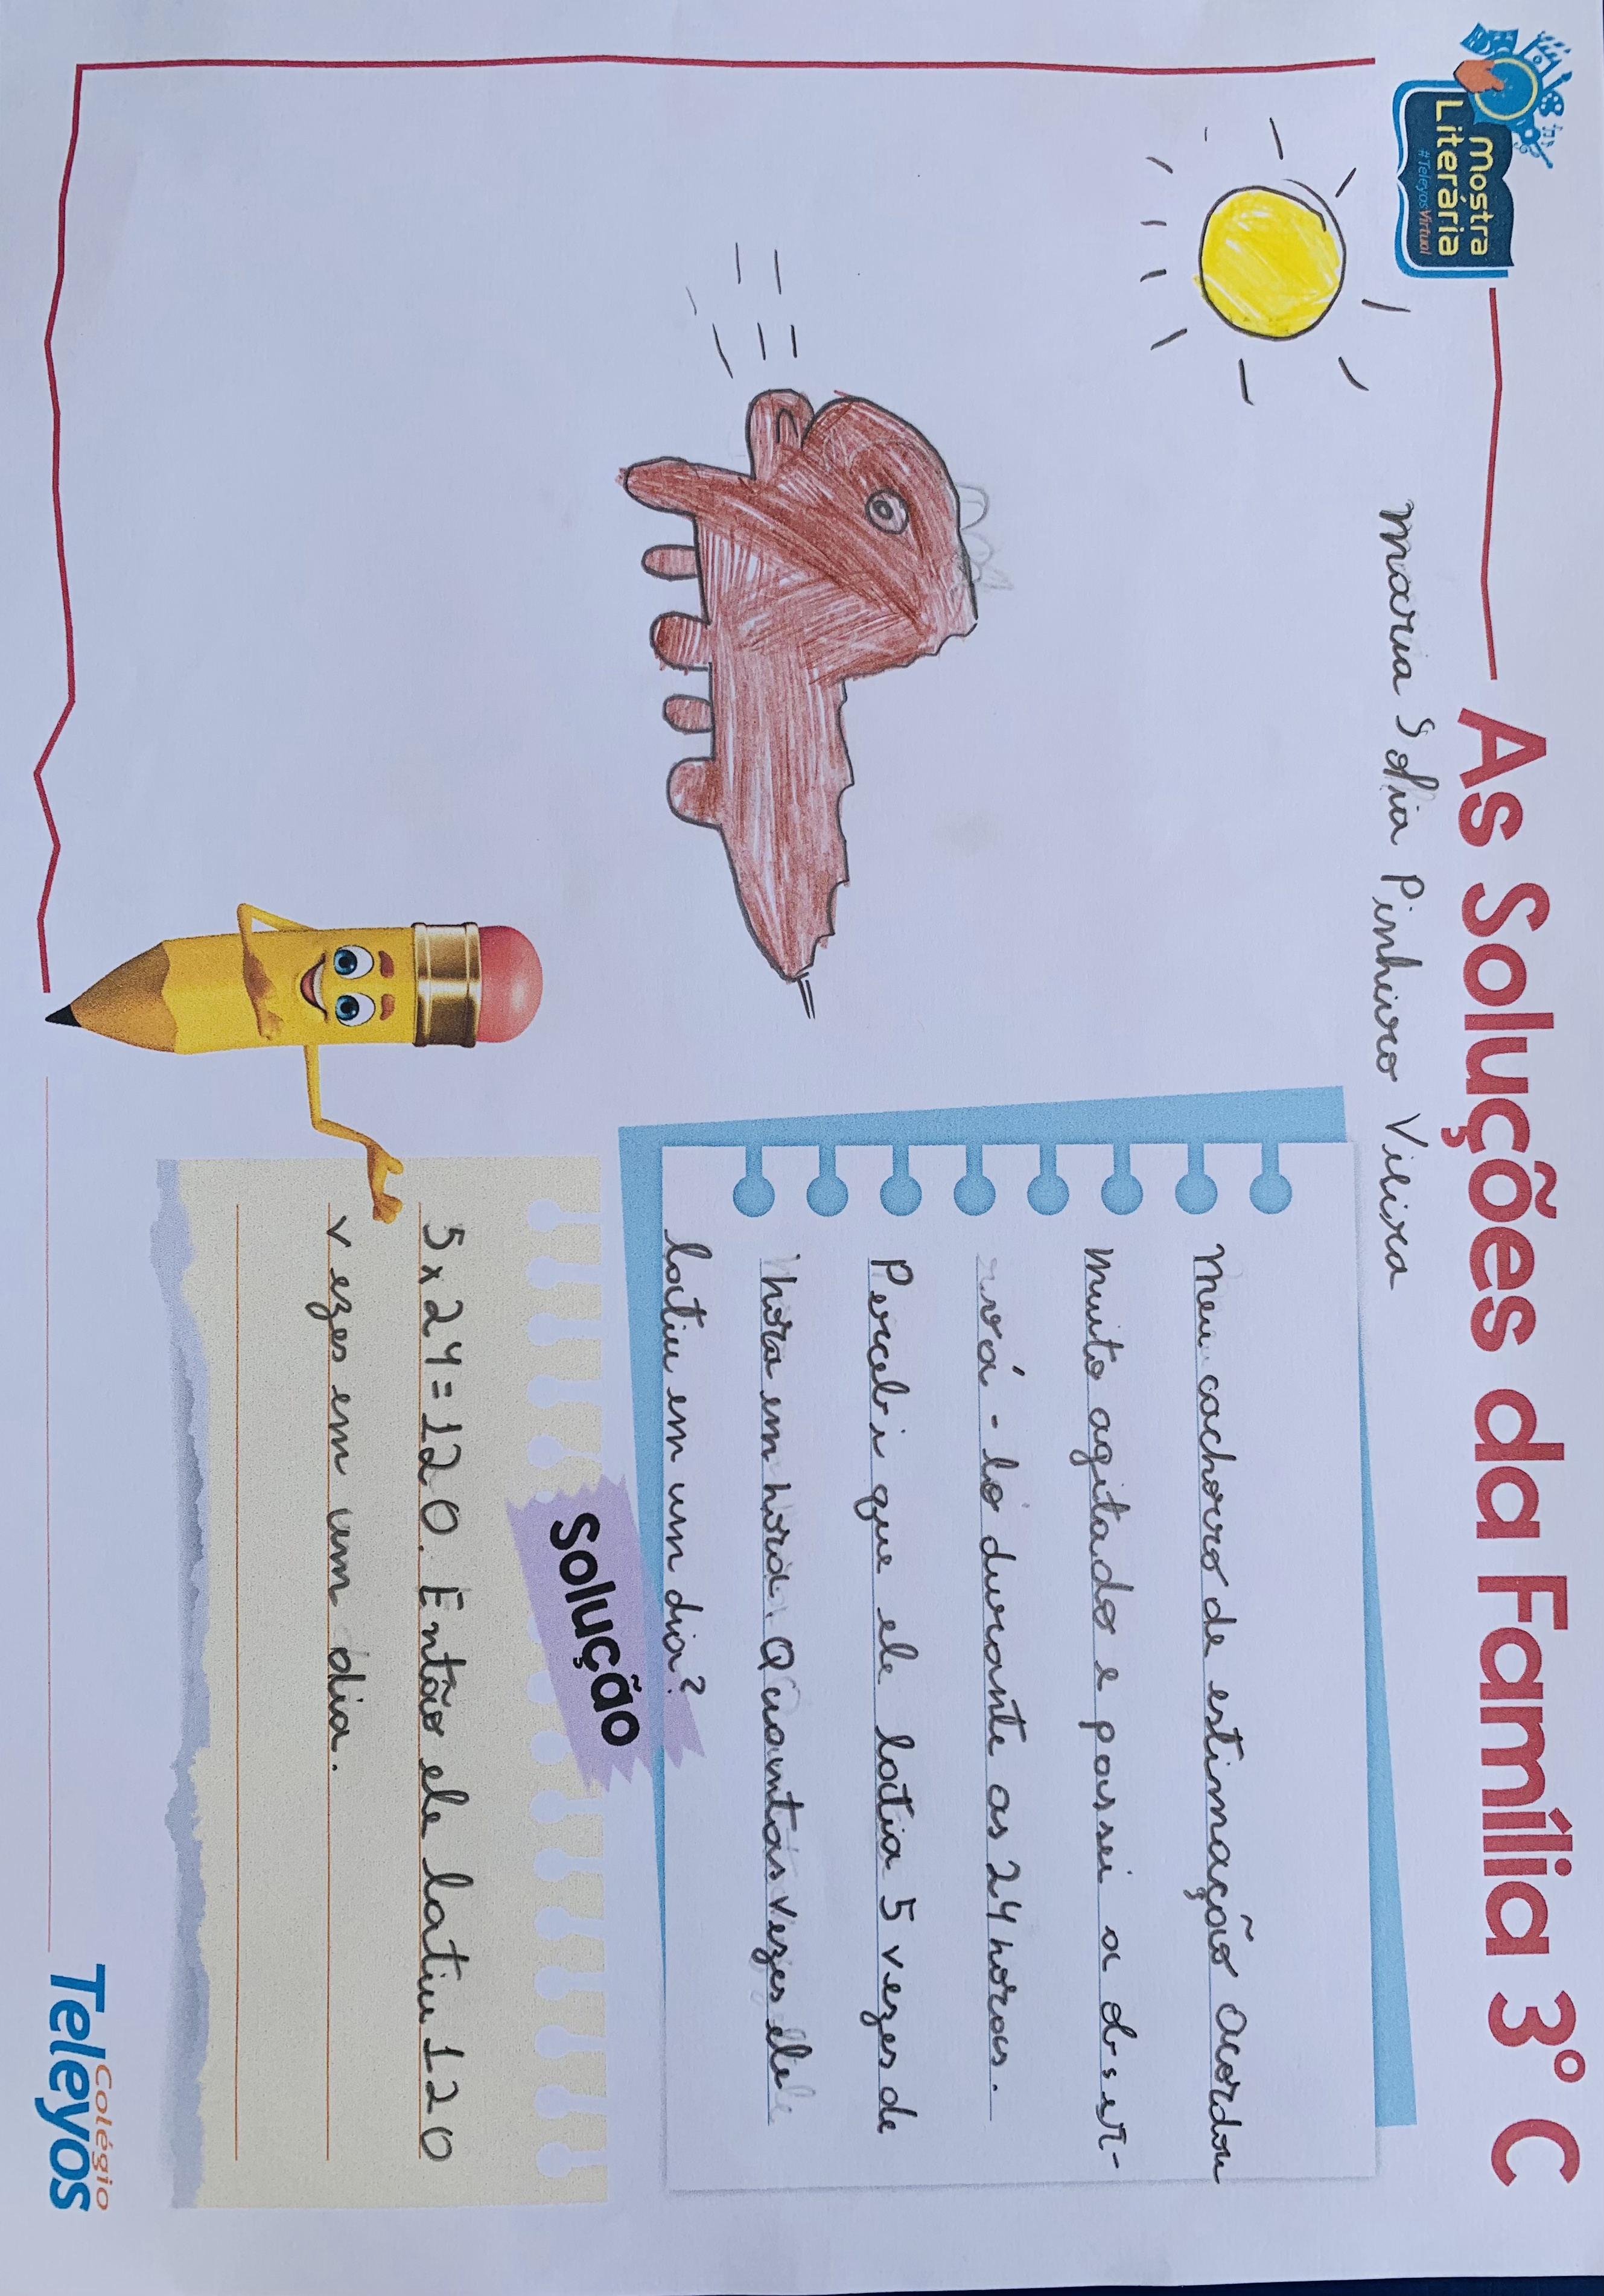 Mostra
Literária
#TeleyosVirtual
As Soluções da Família 3° C
Maria Sofia Pinheiro Vieira
Meu cachorro de estimação acordou
muito agitado e passei a obser-
vá-lo durante as 24 horas.
Percebi que ele latia 5 vezes de
hora em hora. Quantas vezes ele
latiu em um dia?
Solução
5x24=120. Então ele latiu 120
vezes em um dia.
Colégio
Teleyos